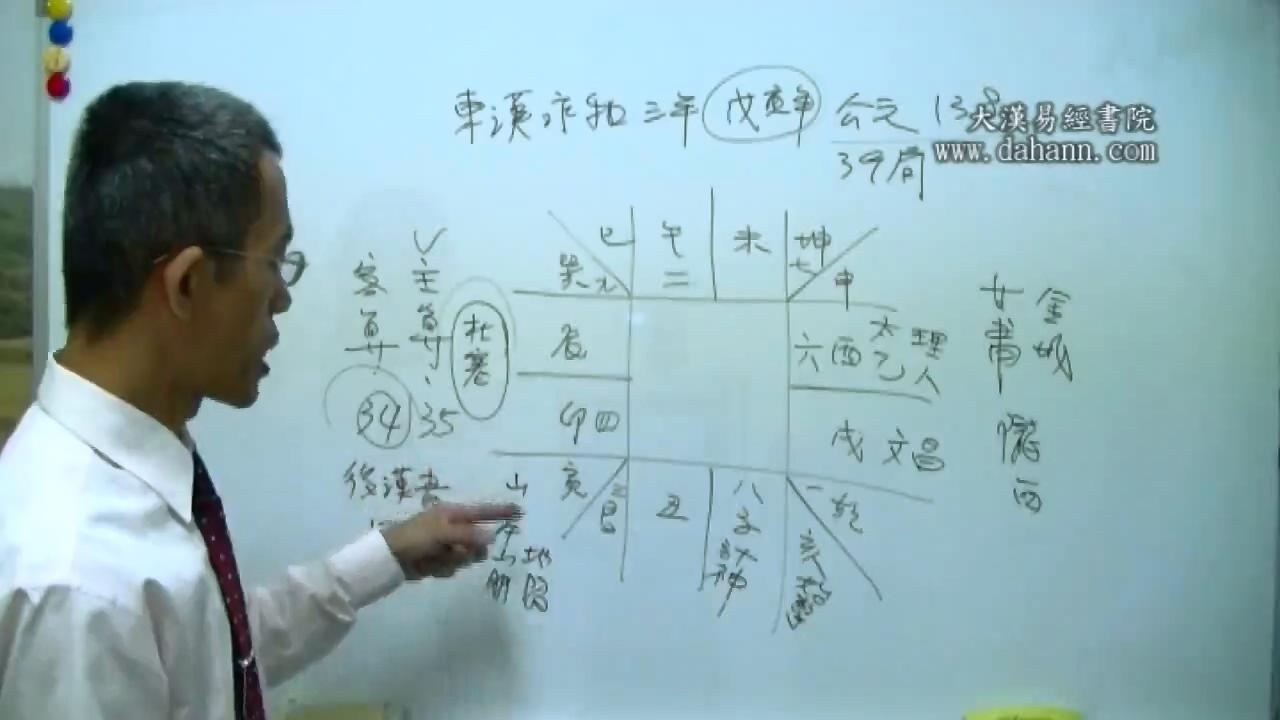 東漢永和三年 戊寅年 公元 138
大漢易經書院
www.dahann.com
39局
巳 午 未 坤
巽 九 二 七 申
辰 六 酉 太乙 理人
卯 四 戌 文昌
寅 三 丑 八 子 一 乾
呂 大神 亥
客算 34
主算 35
北塞
後漢書
山
地
女
金城
隴西